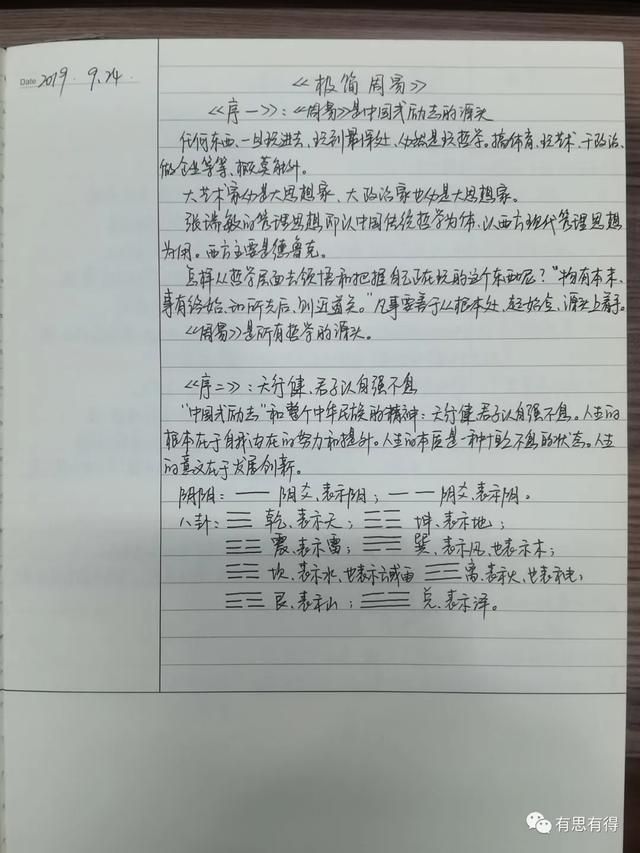 Date 2019. 9.24.
《极简周易》
《序一》:《周易》是中国式励志的源头
任何东西、一旦玩进去、玩到最深处、必然是玩哲学。搞体育、玩艺术、干政治、
做企业等等、概莫能外。
大艺术家必是大思想家、大政治家也必是大思想家。
张瑞敏的管理思想即以中国传统哲学为体、以西方现代管理思想
为用。西方主要是德鲁克。
怎样从哲学层面去领悟和把握自己正在玩的这个东西呢?“物有本末、
事有终始、知所先后、则近道矣。”凡事要善于从根本处、起始点、源头上着手。
《周易》是所有哲学的源头。
《序二》:天行健、君子以自强不息
“中国式励志”和整个中华民族的精神:天行健、君子以自强不息。人生的
根本在于自我内在的努力和提升。人生的本质是一种生生不息的状态。人生
的意义在于发展创新。
阴阳:— 阳爻、表示阳;– – 阴爻、表示阴。
八卦:☰ 乾、表示天;☷ 坤、表示地;
☳ 震、表示雷;☴ 巽、表示风、也表示木;
☵ 坎、表示水、也表示云或雨 ☲ 离、表示火、也表示电;
☶ 艮、表示山;☱ 兑、表示泽。
有思有得